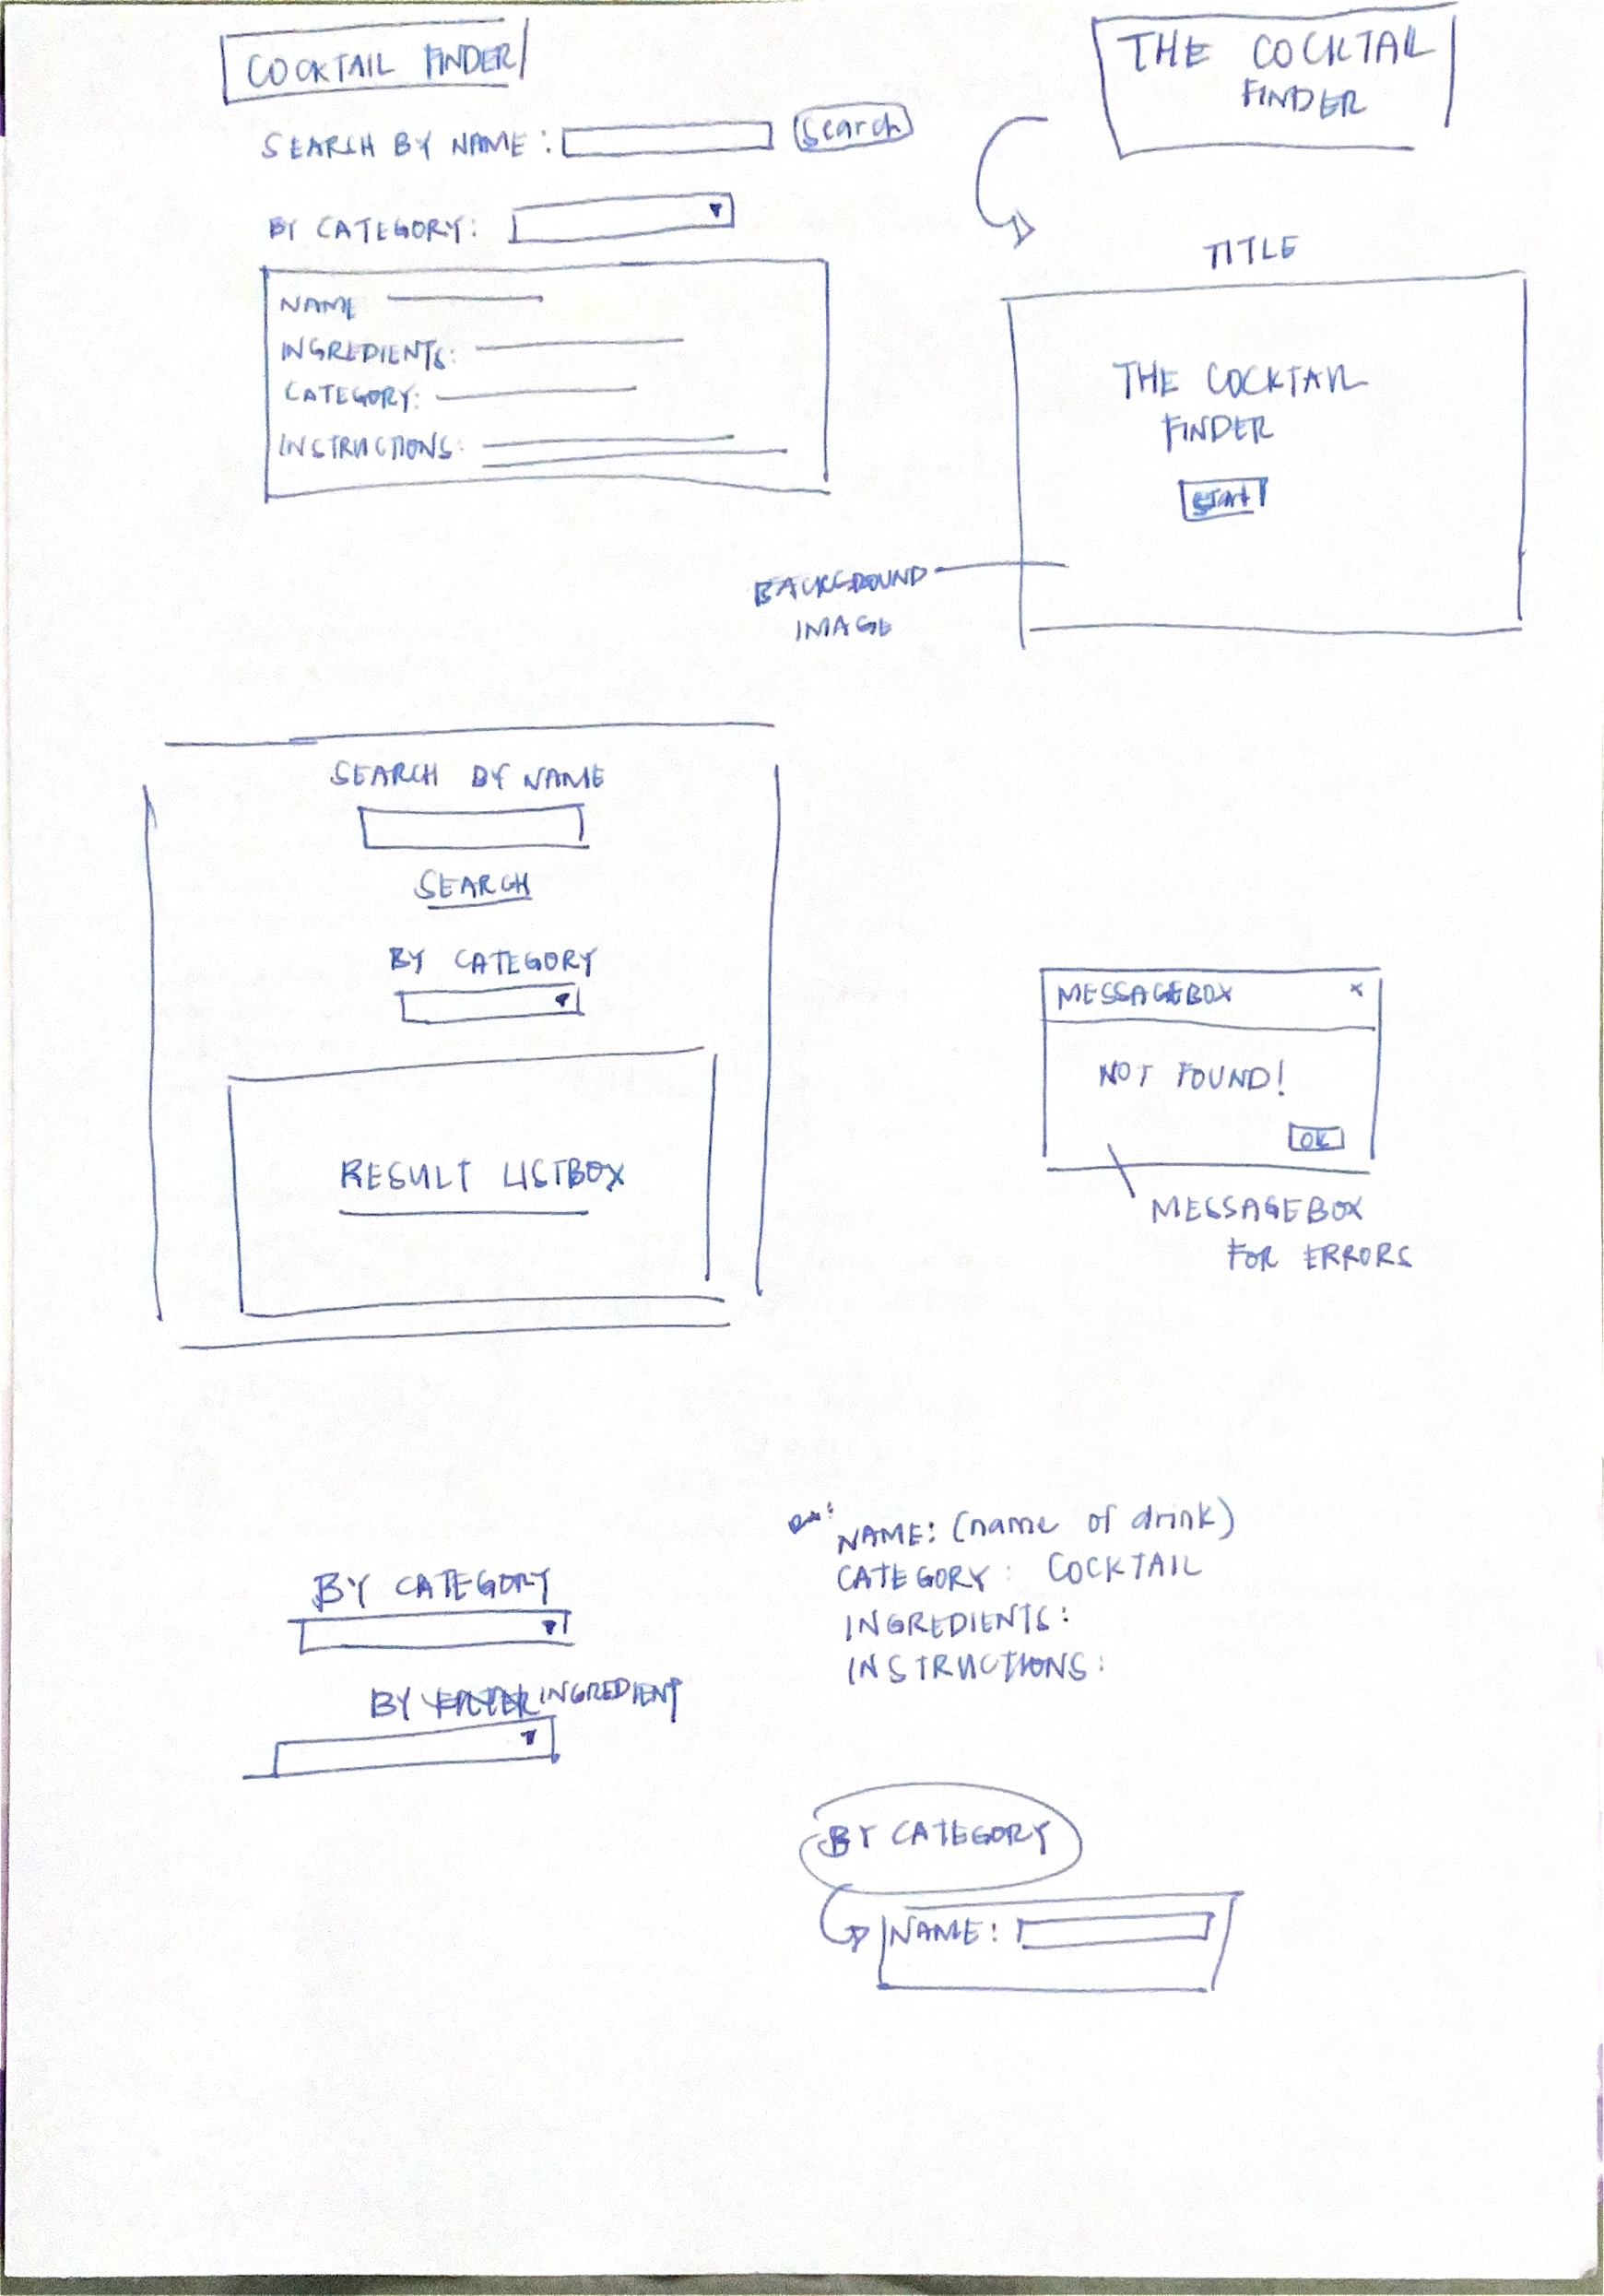 COCKTAIL FINDER
SEARCH BY NAME :
Search
BY CATEGORY:
NAME
INGREDIENTS:
CATEGORY:
INSTRUCTIONS:
THE COCKTAIL
FINDER
TITLE
THE COCKTAIL
FINDER
START
BACKGROUND
IMAGE
SEARCH BY NAME
SEARCH
BY CATEGORY
RESULT LISTBOX
MESSAGEBOX x
NOT FOUND!
OK
MESSAGEBOX
FOR ERRORS
BY CATEGORY
BY INGREDIENT
ex:
NAME: (name of drink)
CATEGORY: COCKTAIL
INGREDIENTS:
INSTRUCTIONS:
BY CATEGORY
NAME: